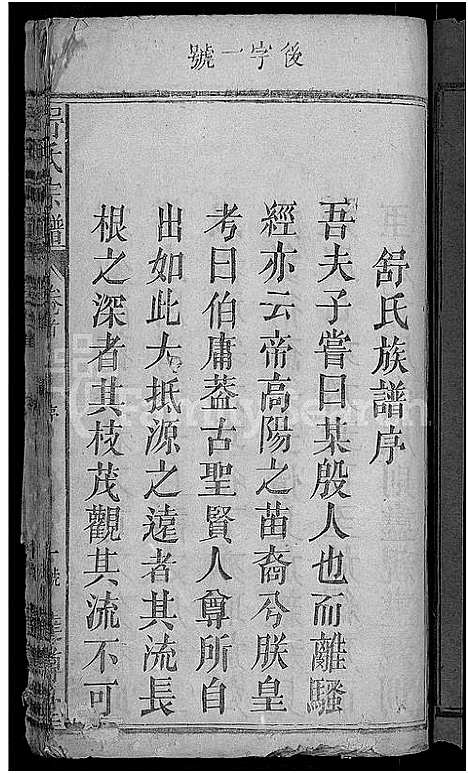 後字一號
舒氏族譜序
吾夫子嘗曰某殷人也而離騷
經亦云帝高陽之苗裔兮朕皇
考曰伯庸葢古聖賢人尊所自
出如此大抵源之遠者其流長
根之深者其枝茂觀其流不可
舒氏宗譜 卷首 序